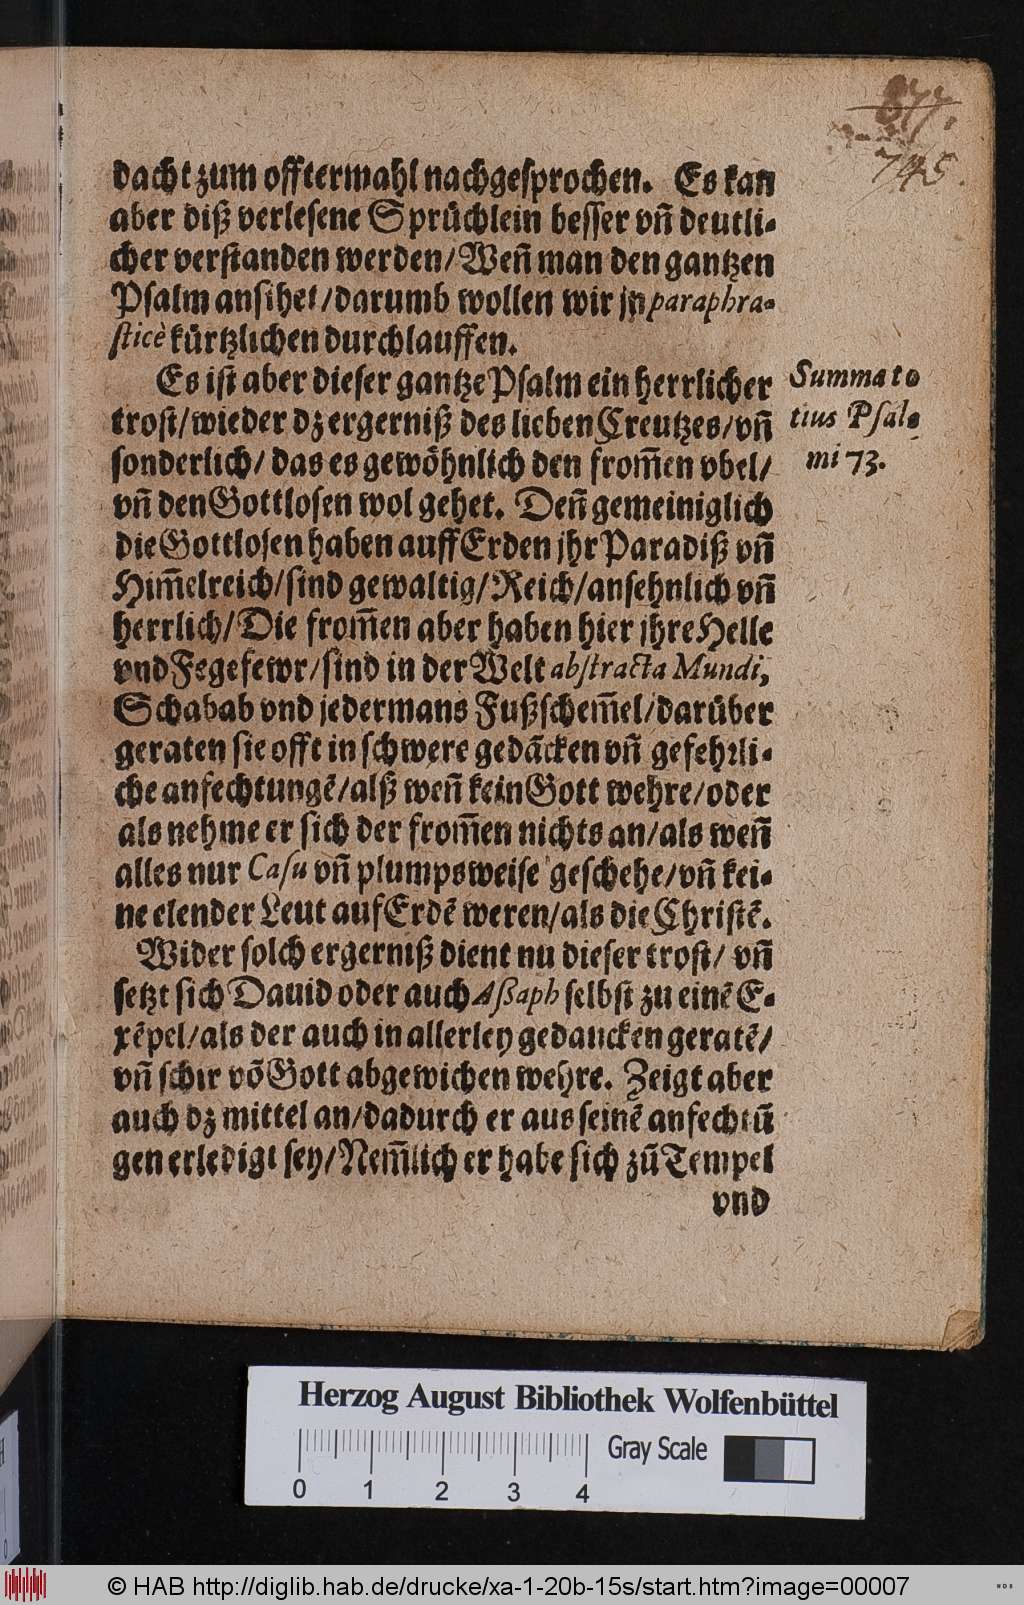 877.
745.
dacht zum offtermahl nachgesprochen. Es kan
aber diß verlesene Sprüchlein besser vñ deutli-
cher verstanden werden/ Weñ man den gantzen
Psalm ansihet/ darumb wollen wir jn paraphra-
sticè kürtzlichen durchlauffen.
Es ist aber dieser gantze Psalm ein herrlicher
trost/ wieder dz ergerniß des lieben Creutzes/ vñ
sonderlich/ das es gewöhnlich den from̃en vbel/
vñ den Gottlosen wol gehet. Deñ gemeiniglich
die Gottlosen haben auff Erden jhr Paradiß vñ
Him̃elreich/ sind gewaltig/ Reich/ ansehnlich vñ
herrlich/ Die from̃en aber haben hier jhre Helle
vnd Fegefewr/ sind in der Welt abstracta Mundi,
Schabab vnd jedermans Fußschem̃el/ darüber
geraten sie offt in schwere gedãcken vñ gefehrli-
che anfechtungẽ/ alß weñ kein Gott wehre/ oder
als nehme er sich der from̃en nichts an/ als weñ
alles nur Casu vñ plumpsweise geschehe/ vñ kei-
ne elender Leut auf Erdẽ weren/ als die Christẽ.
Wider solch ergerniß dient nu dieser trost/ vñ
setzt sich Dauid oder auch Aßaph selbst zu einẽ E-
xẽpel/ als der auch in allerley gedancken geratẽ/
vñ schir võ Gott abgewichen wehre. Zeigt aber
auch dz mittel an/ dadurch er aus seinẽ anfechtũ
gen erledigt sey/ Nem̃lich er habe sich zũ Tempel
vnd
Summa to-
tius Psal-
mi 73.
Herzog August Bibliothek Wolfenbüttel
Gray Scale
0 1 2 3 4
© HAB http://diglib.hab.de/drucke/xa-1-20b-15s/start.htm?image=00007